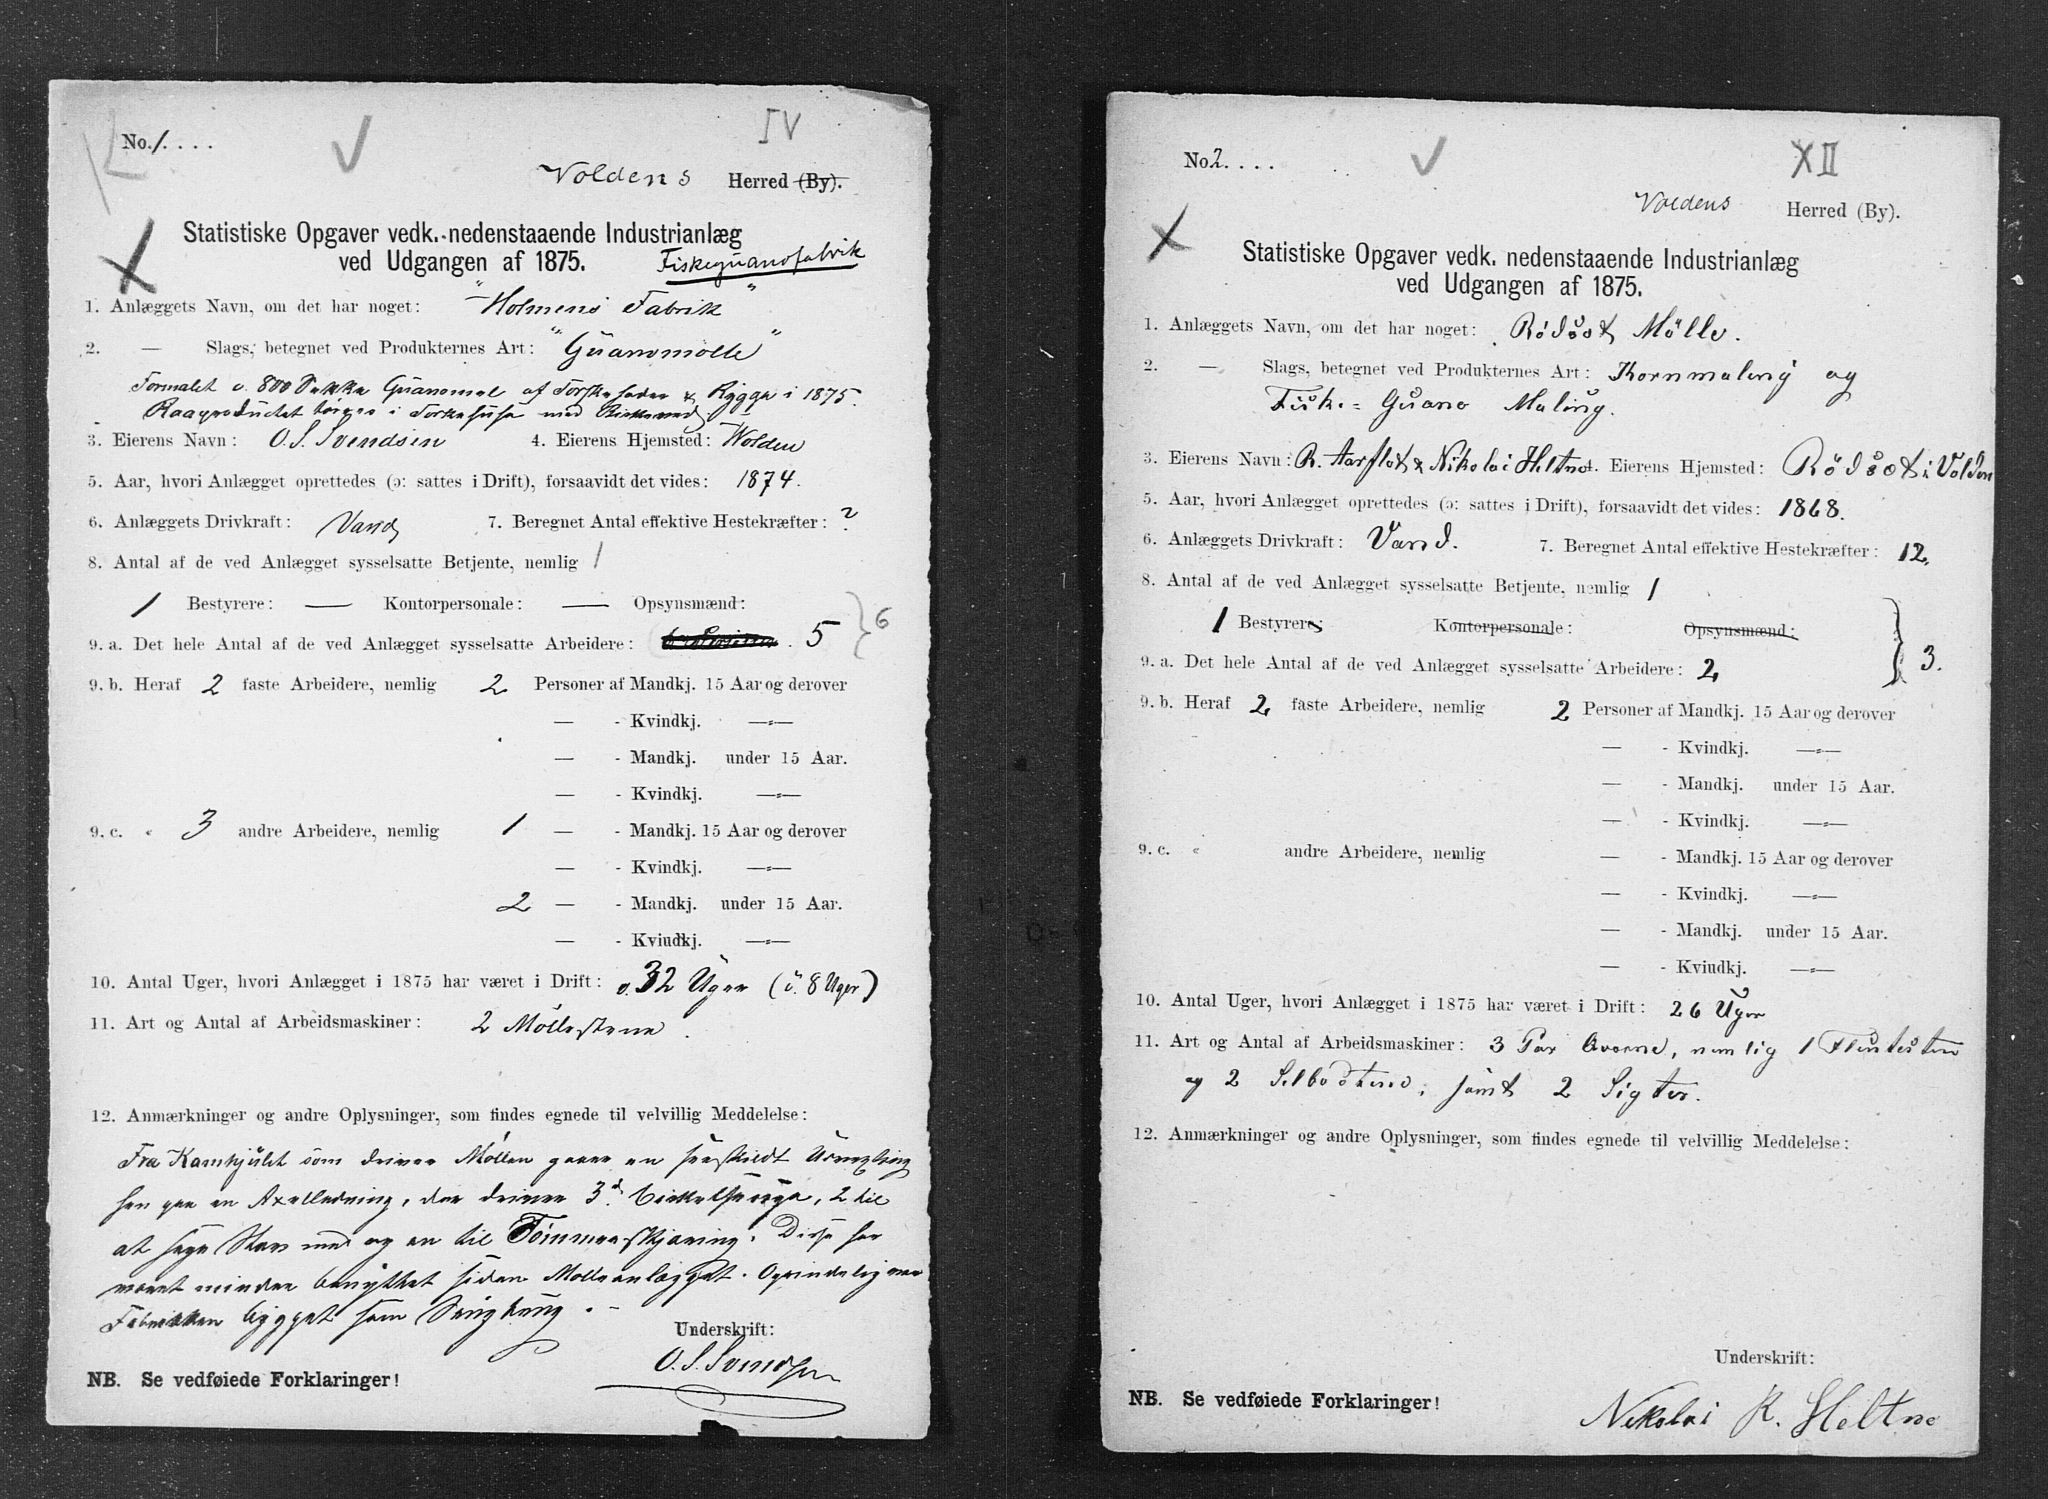 No. 1. . . .
IV
Voldens Herred (By).
Statistiske Opgaver vedk. nedenstaaende Industrianlæg
ved Udgangen af 1875.
Fiskeguanofabrik
1. Anlæggets Navn, om det har noget: "Holmens Fabrik"
2. — Slags, betegnet ved Produkternes Art: "Guanomølle"
Formalet c. 800 Sække Guanomel af Torskehoder & Rygge i 1875.
Raaproductet tørres i Tørkehuse med
3. Eierens Navn: O. S. Svendsen 4. Eierens Hjemsted: Volden
5. Aar, hvori Anlægget oprettedes (ɔ: sattes i Drift), forsaavidt det vides: 1874.
6. Anlæggets Drivkraft: Vand 7. Beregnet Antal effektive Hestekræfter: ?
8. Antal af de ved Anlægget sysselsatte Betjente, nemlig 1
1 Bestyrere: — Kontorpersonale: — Opsynsmænd:
9. a. Det hele Antal af de ved Anlægget sysselsatte Arbeidere: 5 } 6
9. b. Heraf 2 faste Arbeidere, nemlig 2 Personer af Mandkj. 15 Aar og derover
— - Kvindkj. —»—
— - Mandkj. under 15 Aar.
— - Kvindkj. —»—
9. c. « 3 andre Arbeidere, nemlig 1 — - Mandkj. 15 Aar og derover
— - Kvindkj. —»—
2 — - Mandkj. under 15 Aar.
— - Kviudkj. —»—
10. Antal Uger, hvori Anlægget i 1875 har været i Drift: c. 32 Uger (à 8 Uger)
11. Art og Antal af Arbeidsmaskiner: 2 Møllestene.
12. Anmærkninger og andre Oplysninger, som findes egnede til velvillig Meddelelse:
Fra Kamhjulet som driver Møllen gaaer en særskildt
en Axelledning, der driver 3de Cirkelsauge, 2 til
at sage Stav med og en til Tømmerskjæring. Disse har
været mindre benyttet siden Mølleanlægget. Oprindelig var
Fabrikken bygget som Sagbrug.
Underskrift:
O. S. Svendsen
NB. Se vedføiede Forklaringer!
No. 2. . . .
XII
Voldens Herred (By).
Statistiske Opgaver vedk. nedenstaaende Industrianlæg
ved Udgangen af 1875.
1. Anlæggets Navn, om det har noget: Rødsæt Mølle.
2. — Slags, betegnet ved Produkternes Art: Kornmaling og
Fiske-Guano Maling.
3. Eierens Navn: R. Aarflot & Nikolai Heltne 4. Eierens Hjemsted: Rødsæt i Volden
5. Aar, hvori Anlægget oprettedes (ɔ: sattes i Drift), forsaavidt det vides: 1868.
6. Anlæggets Drivkraft: Vand. 7. Beregnet Antal effektive Hestekræfter: 12.
8. Antal af de ved Anlægget sysselsatte Betjente, nemlig 1
1 Bestyrere Kontorpersonale: Opsynsmænd:
9. a. Det hele Antal af de ved Anlægget sysselsatte Arbeidere: 2 } 3.
9. b. Heraf 2 faste Arbeidere, nemlig 2 Personer af Mandkj. 15 Aar og derover
— - Kvindkj. —»—
— - Mandkj. under 15 Aar.
— - Kvindkj. —»—
9. c. « andre Arbeidere, nemlig — - Mandkj. 15 Aar og derover
— - Kvindkj. —»—
— - Mandkj. under 15 Aar.
— - Kviudkj. —»—
10. Antal Uger, hvori Anlægget i 1875 har været i Drift: 26 Uger
11. Art og Antal af Arbeidsmaskiner: 3 Par Qværne, nemlig 1 Flintesten
og 2 Selbostene, samt 2 Sigter.
12. Anmærkninger og andre Oplysninger, som findes egnede til velvillig Meddelelse:
Underskrift:
Nikolai R. Heltne
NB. Se vedføiede Forklaringer!